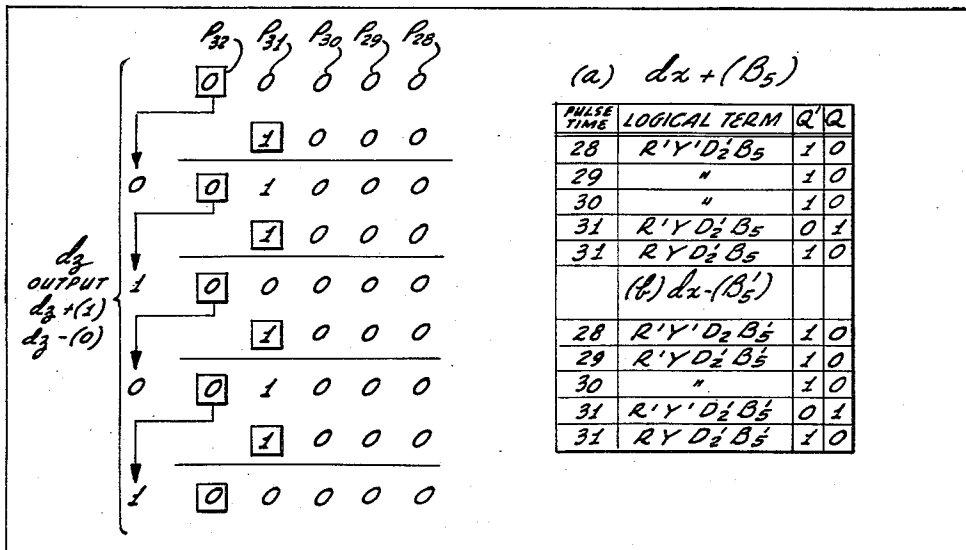 P32 P31 P30 P29 P28
0 0 0 0 0
1 0 0 0
0 0 1 0 0 0
1 0 0 0
1 0 0 0 0 0
1 0 0 0
0 0 1 0 0 0
1 0 0 0
1 0 0 0 0 0
dz
OUTPUT
dz +(1)
dz -(0)
(a) dx + (B5)
PULSE TIME LOGICAL TERM Q' Q
28 R'Y'D2'B5 1 0
29 " 1 0
30 " 1 0
31 R'YD2'B5 0 1
31 RYD2'B5 1 0
(b) dx-(B5')
28 R'Y'D2B5' 1 0
29 R'Y'D2'B5' 1 0
30 " 1 0
31 R'Y'D2'B5' 0 1
31 RYD2'B5' 1 0